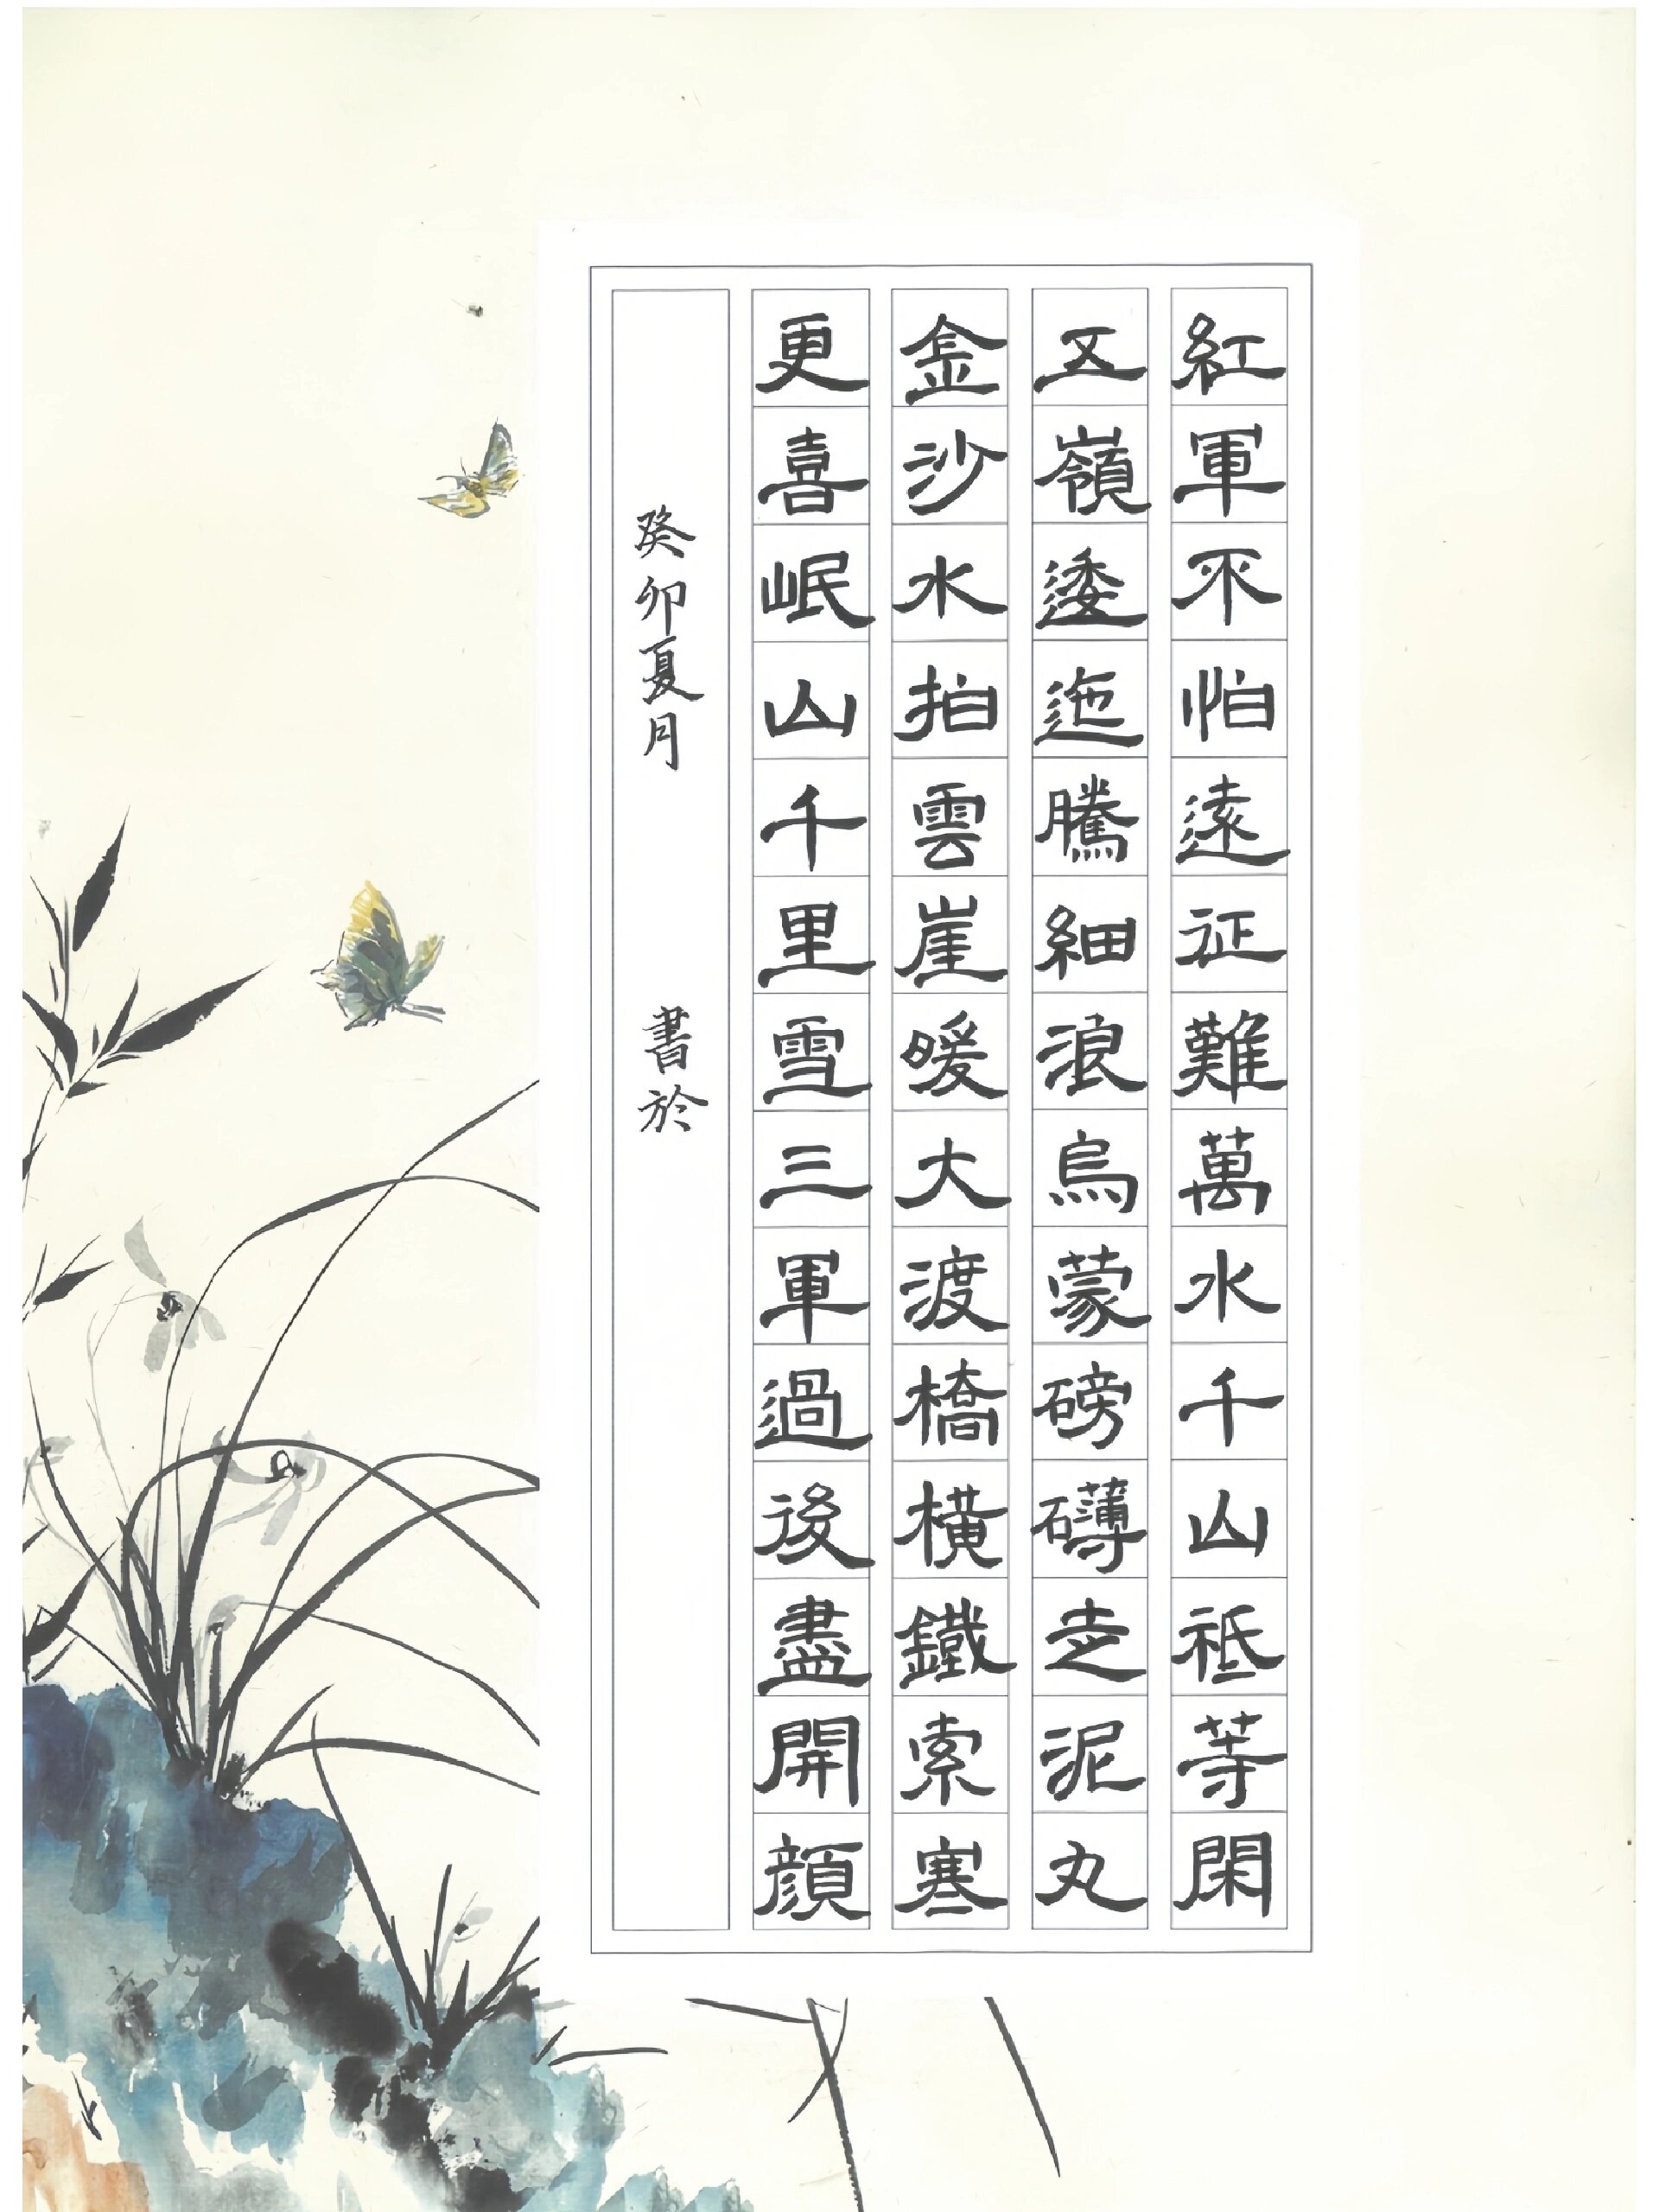 紅軍不怕遠征難萬水千山祗等閑
五嶺逶迤騰細浪烏蒙磅礴走泥丸
金沙水拍雲崖暖大渡橋橫鐵索寒
更喜岷山千里雪三軍過後盡開顔
癸卯夏月 書於